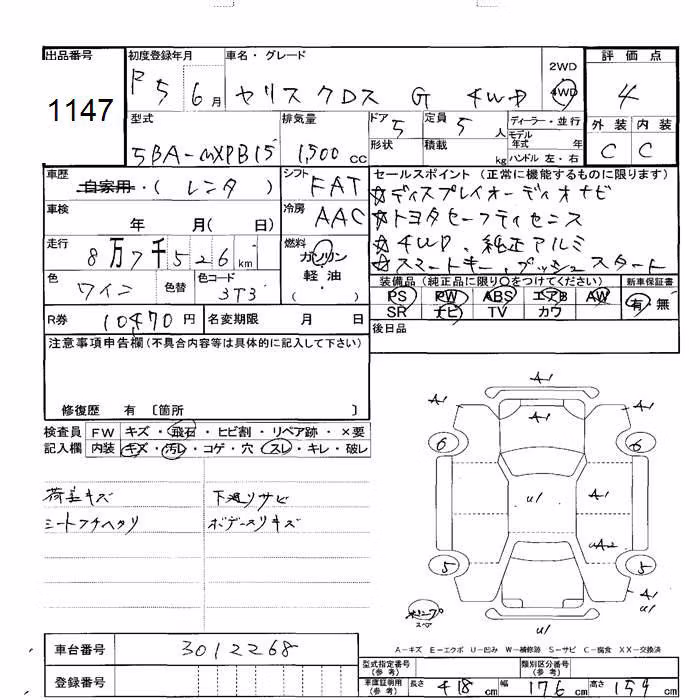 出品番号
1147
初度登録年月
R5 6月
車名・グレード
ヤリスクロス G 4WD
2WD
4WD
評価点
4
外装 内装
C C
型式
5BA-MXPB15
排気量
1,500 cc
ドア 5
形状
定員 5 人
積載 kg
ディーラー・並行
モデル年式 年
ハンドル 左・右
車歴
自家用・(レンタ)
シフト
FAT
車検
年 月( 日)
冷房
AAC
走行
8万7千526km
燃料
ガソリン
軽油
( ・ )
色
ワイン
色替
色コード
3T3
セールスポイント(正常に機能するものに限ります)
☆ディスプレイオーディオナビ
☆トヨタセーフティセンス
☆4WD、純正アルミ
☆スマートキー、プッシュスタート
装備品(純正品に限り○をつけてください)
PS PW ABS エアB AW
SR ナビ TV カワ
新車保証書
有 無
後日品
R券
10,470円
名変期限 月 日
注意事項申告欄(不具合内容等は具体的に記入して下さい)
修復歴 有 〔箇所 〕
検査員記入欄
FW キズ・飛石・ヒビ割・リペア跡・×要
内装 キズ・汚レ・コゲ・穴・スレ・キレ・破レ
荷室キズ
シートフチヘタリ
下廻りサビ
ボデースリキズ
A1
A1 A1
6 6
U1 U1 A1
UA2
5 5
A1
A1 U1
スペア
A-キズ E-エクボ U-凹み W-補修跡 S-サビ C-腐食 XX-交換済
車台番号
3012268
登録番号
型式指定番号(参考)
類別区分番号(参考)
車庫証明用(参考) 長さ 418cm 幅 176cm 高さ 159cm